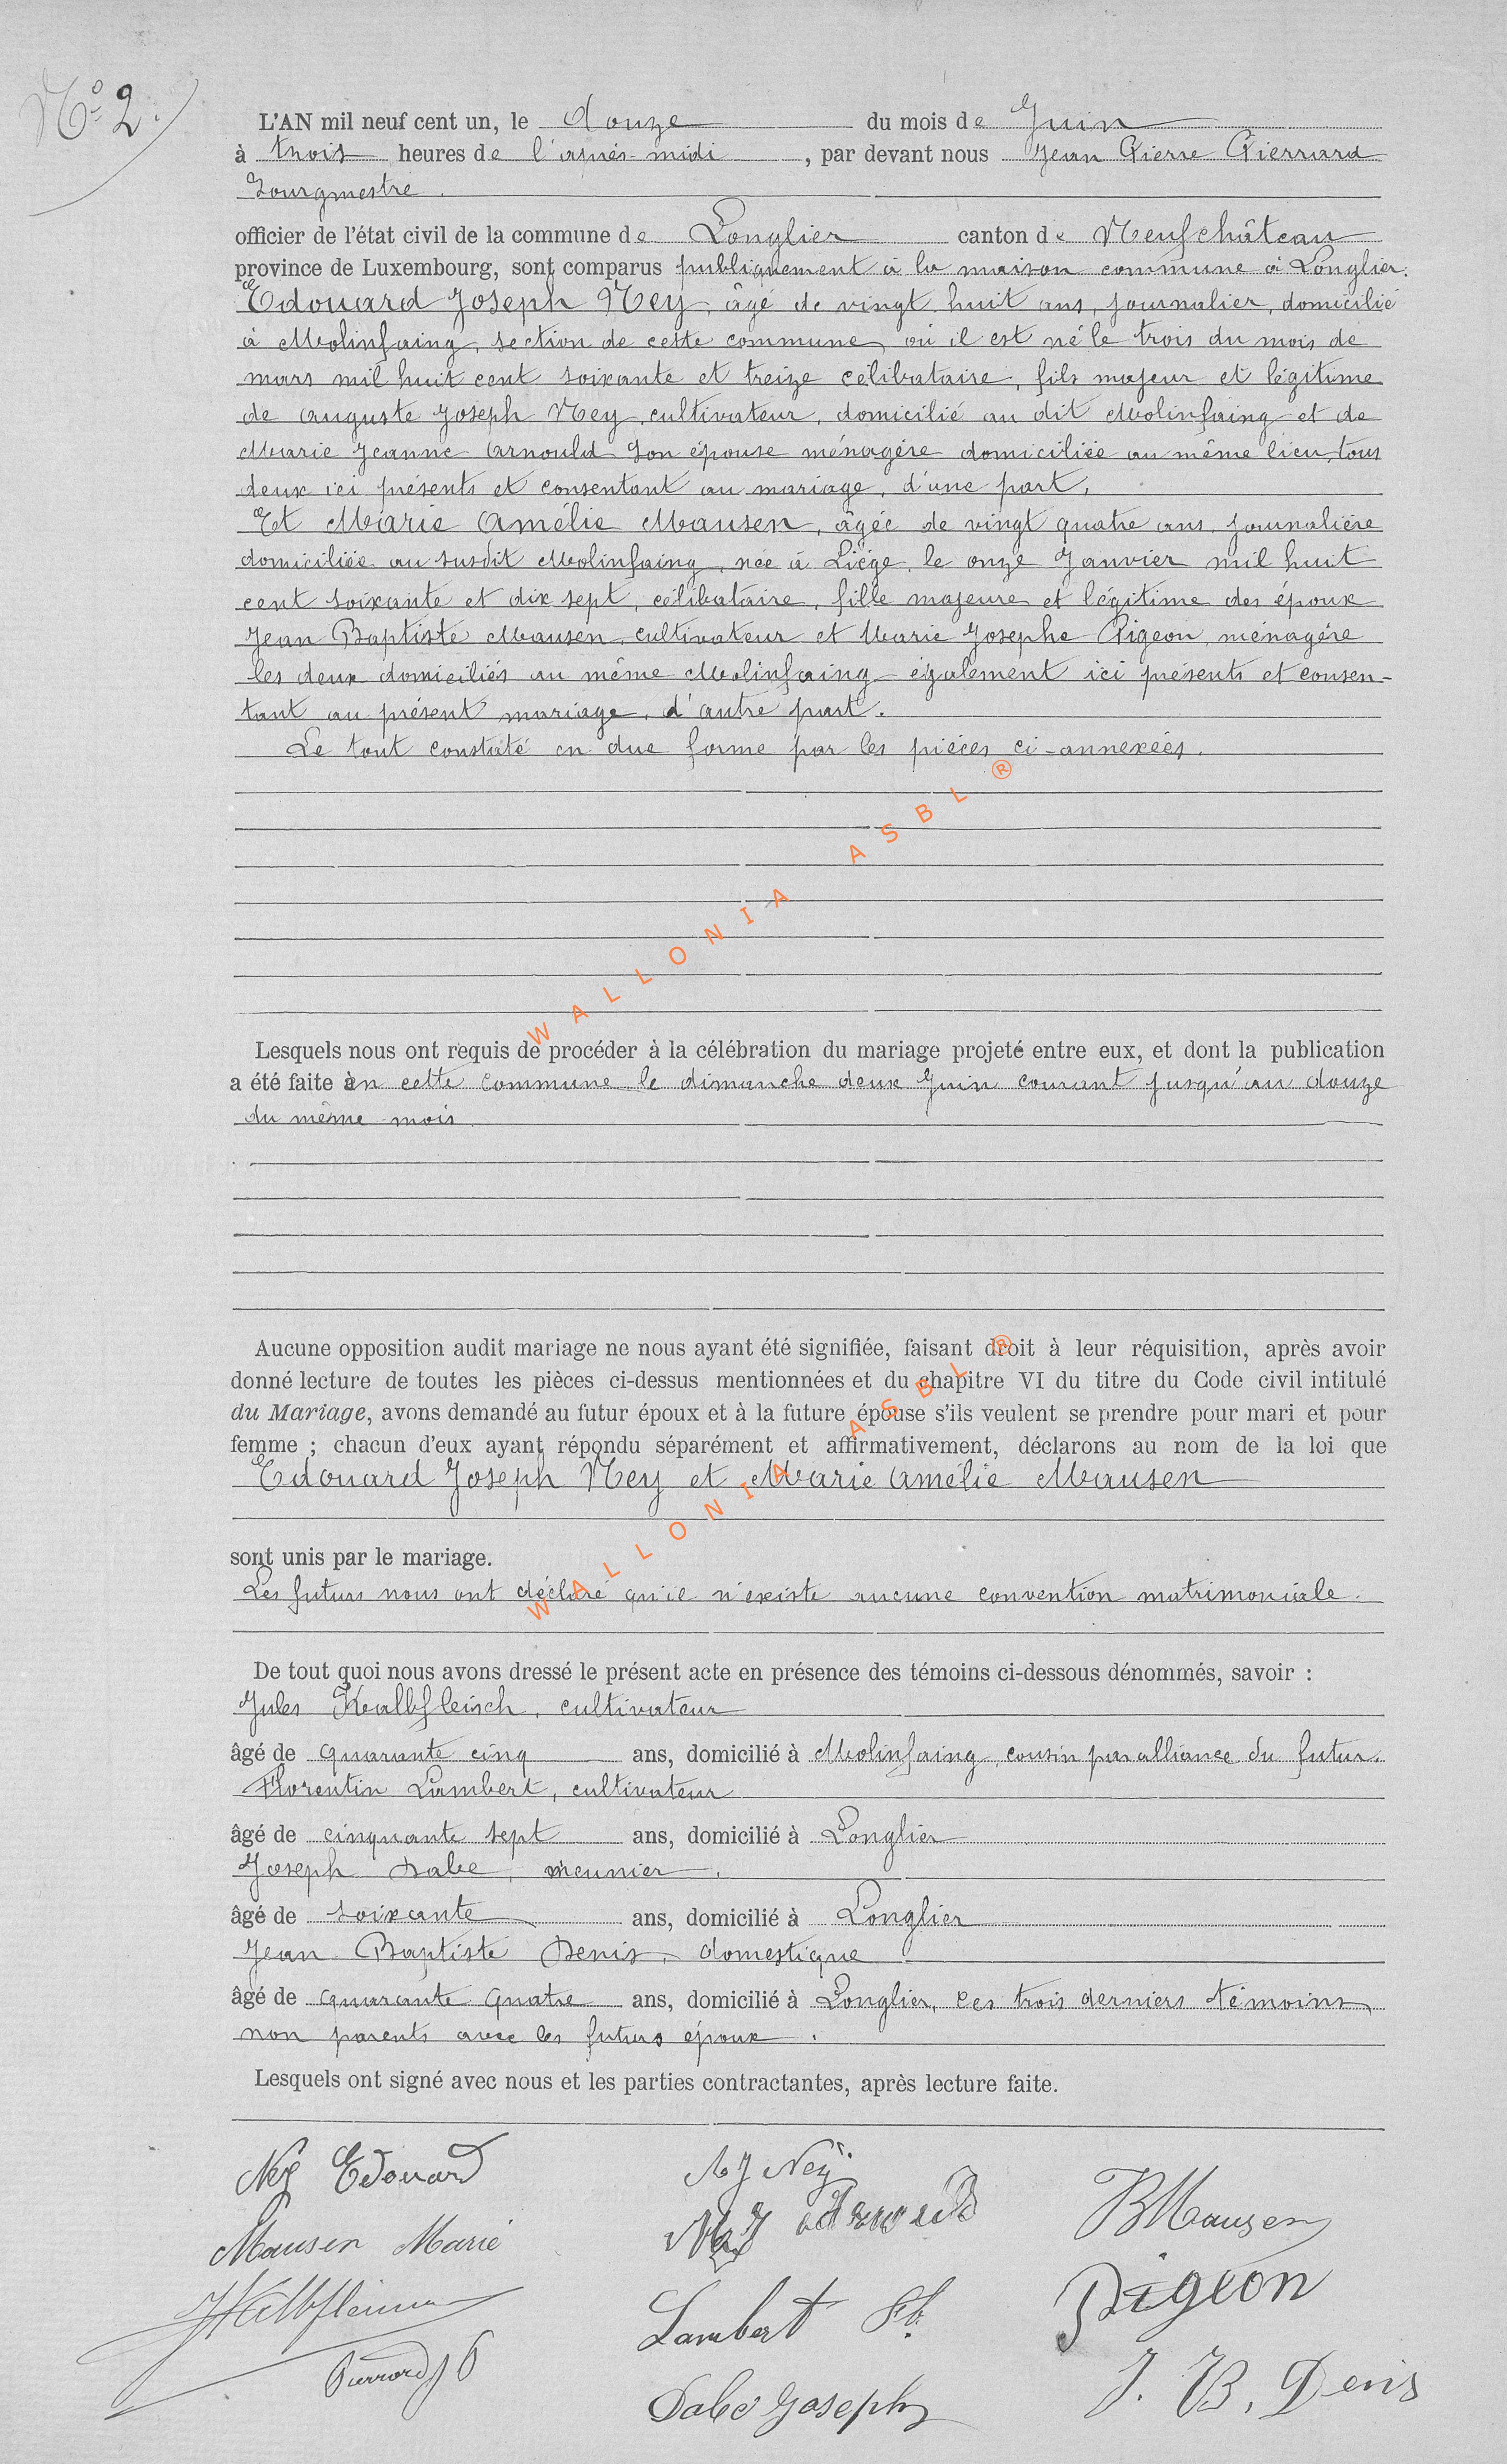 N° 2.
L'AN mil neuf cent un, le douze du mois de Juin
à trois heures de l'après-midi, par devant nous Jean Pierre Pierrard
Bourgmestre.
officier de l'état civil de la commune de Longlier canton de Neufchâteau
province de Luxembourg, sont comparus publiquement à la maison commune à Longlier.
Edouard Joseph Ney, âgé de vingt huit ans, journalier, domicilié
à Molinfaing, section de cette commune, où il est né le trois du mois de
mars mil huit cent soixante et treize célibataire, fils majeur et légitime
de Auguste Joseph Ney, cultivateur, domicilié au dit Molinfaing et de
Marie Jeanne Arnould son épouse ménagère domiciliée au même lieu, tous
deux ici présents et consentant au mariage, d'une part.
Et Marie Amélie Mausen, âgée de vingt quatre ans, journalière
domiciliée au susdit Molinfaing, née à Liége, le onze Janvier mil huit
cent soixante et dix sept, célibataire, fille majeure et légitime des époux
Jean Baptiste Mausen, cultivateur et Marie Josephe Pigeon, ménagère
les deux domiciliés au même Molinfaing également ici présents et consen-
tant au présent mariage, d'autre part.
Le tout constaté en due forme par les pièces ci-annexées.
WALLONIA ASBL ®
Lesquels nous ont requis de procéder à la célébration du mariage projeté entre eux, et dont la publication
a été faite en cette commune le dimanche deux Juin courant jusqu'au douze
du même mois.
Aucune opposition audit mariage ne nous ayant été signifiée, faisant droit à leur réquisition, après avoir
donné lecture de toutes les pièces ci-dessus mentionnées et du chapitre VI du titre du Code civil intitulé
du Mariage, avons demandé au futur époux et à la future épouse s'ils veulent se prendre pour mari et pour
femme ; chacun d'eux ayant répondu séparément et affirmativement, déclarons au nom de la loi que
Edouard Joseph Ney et Marie Amélie Mausen
WALLONIA ASBL ®
sont unis par le mariage.
Les futurs nous ont déclaré qu'il n'existe aucune convention matrimoniale.
De tout quoi nous avons dressé le présent acte en présence des témoins ci-dessous dénommés, savoir :
Jules Kalbfleisch, cultivateur
âgé de quarante cinq ans, domicilié à Molinfaing, cousin par alliance du futur.
Florentin Lambert, cultivateur
âgé de cinquante sept ans, domicilié à Longlier
Joseph Dabe, meunier.
âgé de soixante ans, domicilié à Longlier
Jean Baptiste Denis, domestique
âgé de quarante quatre ans, domicilié à Longlier, les trois derniers témoins
non parents avec les futurs époux.
Lesquels ont signé avec nous et les parties contractantes, après lecture faite.
Ney Edouard
A J Ney
M J Arnould
JBMausen
Mausen Marie
Pigeon
JKalbfleisch
Lambert Fl.
Pierrard J P
J. B. Denis
Dabe Joseph